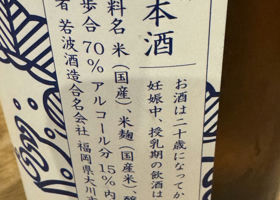 本酒
お酒は二十歳になってか
妊娠中、授乳期の飲酒は
料名 米(国産)、米麹(国産米)、醸
歩合 70% アルコール分 15%
者 若波酒造合名会社 福岡県大川市